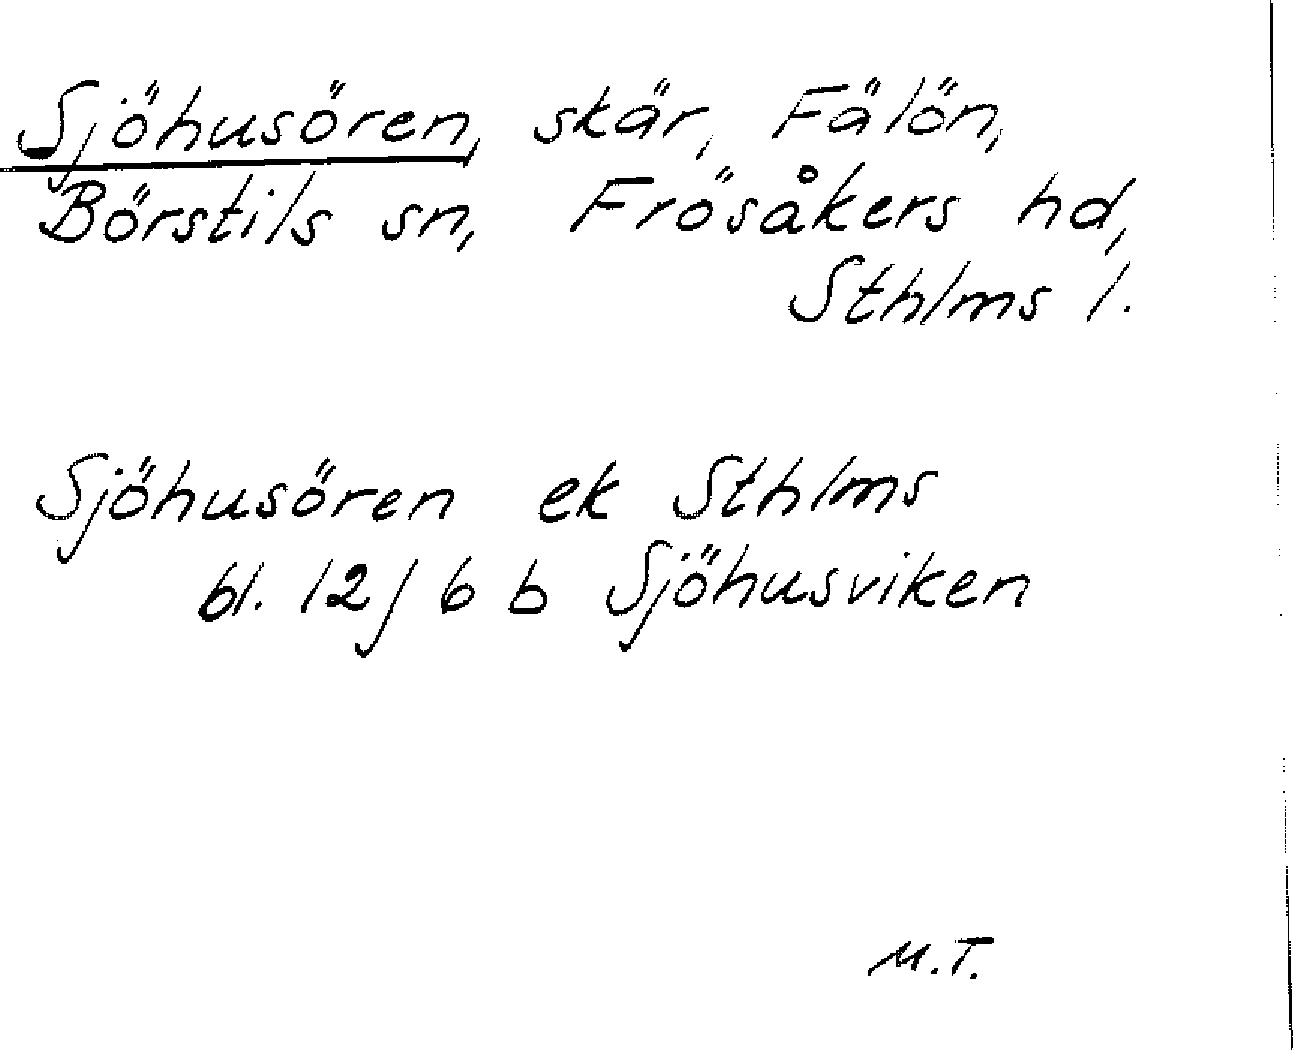 Sjöhusören, skär, Fälön,
Börstils sn, Frösåkers hd,
Sthlms l.
Sjöhusören ek Sthlms
bl. 12j 6 b Sjöhusviken
M.T.